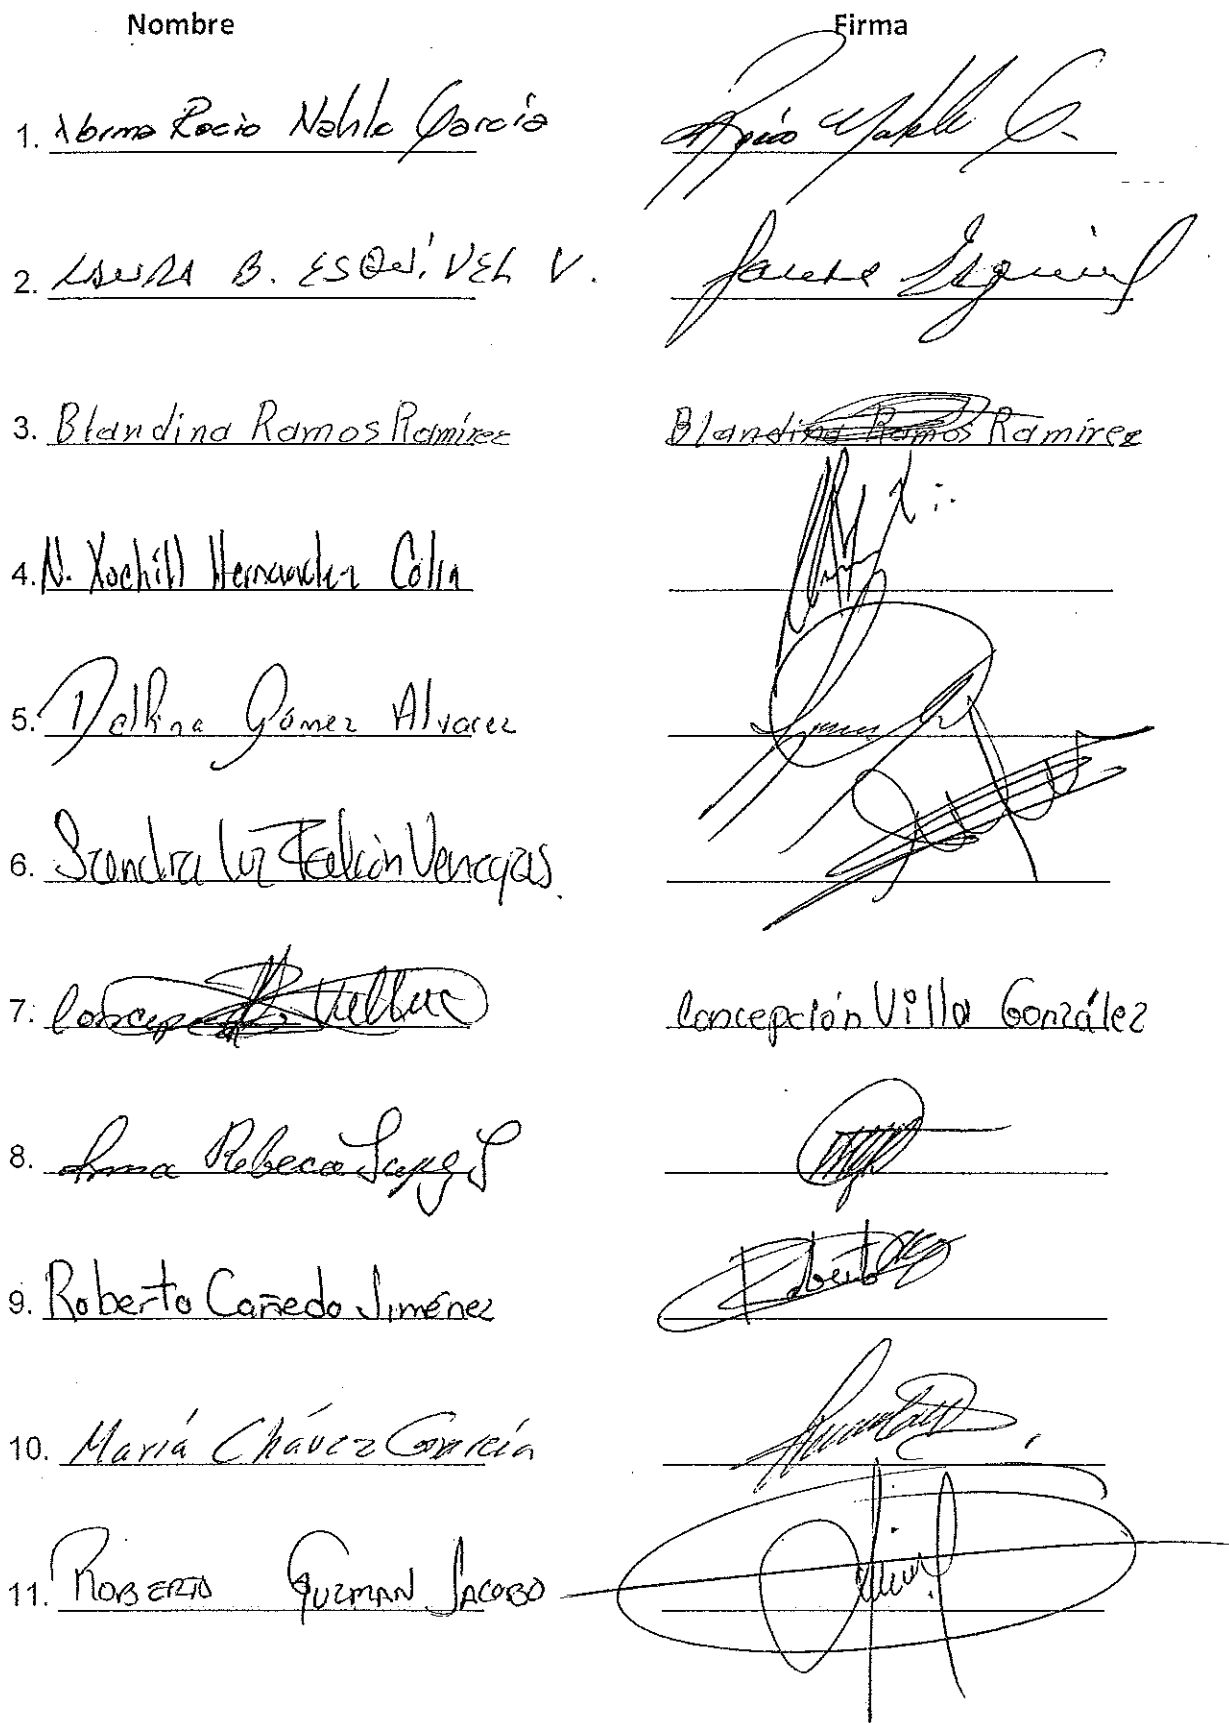 Nombre Firma
1. Norma Rocio Nahle García Rocio Nahle G.
2. LAURA B. ESQUÍVEL V. Laura Esquivel
3. Blandina Ramos Ramírez Blandina Ramos Ramírez
4. N. Xochitl Hernandez Colin
5. Delfina Gómez Alvarez
6. Sandra Luz Falcón Venegas.
7. Concepción Villa Concepción Villa González
8. Irma Rebeca López L
9. Roberto Cañedo Jiménez Roberto
10. María Chávez García
11. ROBERTO GUZMAN JACOBO